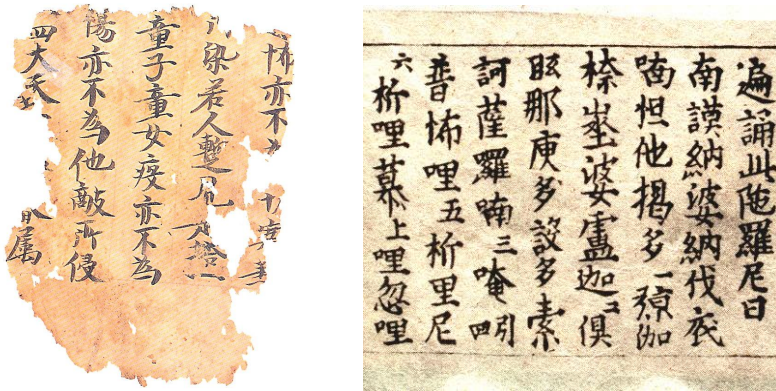 怖亦不為
染若人暫見 塔一
童子童女疫亦不為
傷亦不為他敵所侵
四大天 屬
遍誦此陁羅尼曰
南謨納婆納伐底
喃怛他揭多一殑伽
捺埊婆盧迦二俱
胝那庾多設多索
訶薩羅喃三唵引四
普怖哩五析里尼
六析哩慕上哩忽哩